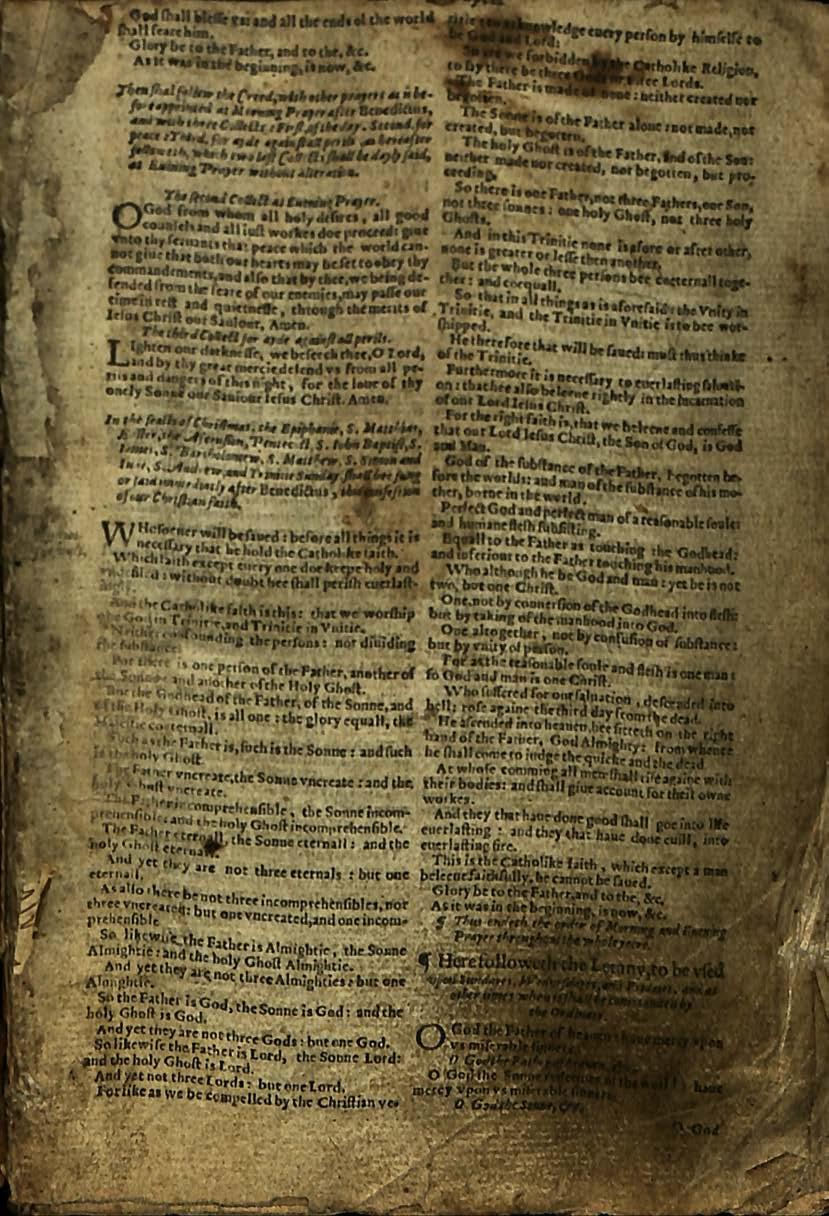 God shall blesse us: and all the ends of the world
shall feare him.
Glory be to the Father, and to the, &c.
As it was in the beginning, is now, &c.
Then shal follow the Creed, with other prayers as is be-
fore appointed at Morning Prayer after Benedictus,
and with three Collects: First, of the day. Second, for
peace: Third, for ayde against all perils, as hereafter
followeth, which two last Collects shall be dayly said,
at Euening Prayer without alteration.
The second Collect at Euening Prayer.
O God from whom all holy desires, all good
counsels and all iust workes doe proceed: giue
vnto thy seruants that peace which the world can-
not giue that both our hearts may be set to obey thy
commandements, and also that by thee, we being de-
fended from the feare of our enemies, may passe our
time in rest and quietnesse, through the merits of
Iesus Christ our Sauiour, Amen.
The third Collect for ayde against all perils.
Lighten our darknesse, we beseech thee, O Lord,
and by thy great mercie defend vs from all pe-
rils and dangers of this night, for the loue of thy
onely Sonne our Sauiour Iesus Christ. Amen.
In the feasts of Christmas, the Epiphanie, S. Matthias,
Easter, the Ascension, Pentecost, S. Iohn Baptist, S.
Iames, S. Bartholomew, S. Matthew, S. Simon and
Iude, S. Andrew, and Trinitie Sunday shall bee sung
or said immediatly after Benedictus, this confession
of our Christian faith.
WHosoeuer will be saued: before all things it is
necessary that he hold the Catholike faith.
Which faith except euery one doe keepe holy and
vndefiled: without doubt hee shall perish euerlast-
And the Catholike faith is this: that we worship
one God in Trinitie, and Trinitie in Vnitie.
Neither confounding the persons: nor diuiding
the substance.
For there is one person of the Father, another of
the Sonne, and another of the Holy Ghost.
But the Godhead of the Father, of the Sonne, and
of the Holy Ghost, is all one: the glory equall, the
Maiestie coeternall.
Such as the Father is, such is the Sonne: and such
is the holy Ghost.
The Father vncreate, the Sonne vncreate: and the
holy Ghost vncreate.
The Father incomprehensible, the Sonne incom-
prehensible: and the holy Ghost incomprehensible.
The Father eternall, the Sonne eternall: and the
holy Ghost eternall.
And yet they are not three eternals: but one
eternall.
As also there be not three incomprehensibles, nor
three vncreated: but one vncreated, and one incom-
prehensible.
So likewise the Father is Almightie, the Sonne
Almightie: and the holy Ghost Almightie.
And yet they are not three Almighties: but one
Almightie.
So the Father is God, the Sonne is God: and the
holy Ghost is God.
And yet they are not three Gods: but one God.
So likewise the Father is Lord, the Sonne Lord:
and the holy Ghost is Lord.
And yet not three Lords: but one Lord.
For like as we be compelled by the Christian ve-
acknowledge euery person by himselfe to
be God and Lord:
So are we forbidden by the Catholike Religion,
to say there be three Gods, or three Lords.
The Father is made of none: neither created nor
begotten.
The Sonne is of the Father alone: not made, not
created, but begotten.
The holy Ghost is of the Father, and of the Son:
neither made nor created, nor begotten, but pro-
ceeding.
So there is one Father, not three Fathers, one Son,
not three sonnes: one holy Ghost, not three holy
Ghosts.
And in this Trinitie none is afore or after other,
none is greater or lesse then another,
But the whole three persons bee coeternall toge-
ther: and coequall.
So that in all things as is aforesaid: the Vnity in
Trinitie, and the Trinitie in Vnitie is to bee wor-
shipped.
He therefore that will be saued: must thus thinke
of the Trinitie.
Furthermore it is necessary to euerlasting saluati-
on: that hee also beleeue rightly in the Incarnation
of our Lord Iesus Christ.
For the right faith is, that we beleeue and confesse
that our Lord Iesus Christ, the Son of God, is God
and Man.
God of the substance of the Father, begotten be-
fore the worlds: and man of the substance of his mo-
ther, borne in the world.
Perfect God and perfect man of a reasonable soule:
and humane flesh subsisting.
Equall to the Father as touching the Godhead:
and inferiour to the Father touching his manhood.
Who although he be God and man: yet he is not
two, but one Christ.
One, not by conuersion of the Godhead into flesh:
but by taking of the manhood into God.
One altogether, not by confusion of substance:
but by vnity of person.
For as the reasonable soule and flesh is one man:
so God and man is one Christ.
Who suffered for our saluation, descended into
hell: rose againe the third day from the dead.
He ascended into heauen, hee sitteth on the right
hand of the Father, God Almighty: from whence
he shall come to iudge the quicke and the dead.
At whose comming all men shall rise againe with
their bodies: and shall giue account for their owne
workes.
And they that haue done good shall goe into life
euerlasting: and they that haue done euill, into
euerlasting fire.
This is the Catholike faith, which except a man
beleeue faithfully, he cannot be saued.
Glory be to the Father, and to the, &c.
As it was in the beginning, is now, &c.
¶ Thus endeth the order of Morning and Euening
Prayer through the whole yeere.
¶ Here followeth the Letany, to be vsed
O God the Father of heauen: haue mercy vpon
vs miserable sinners.
O God the Father of
O God the Sonne redeemer of the world: haue
mercy vpon vs miserable sinners.
O God the Sonne, &c.
O God